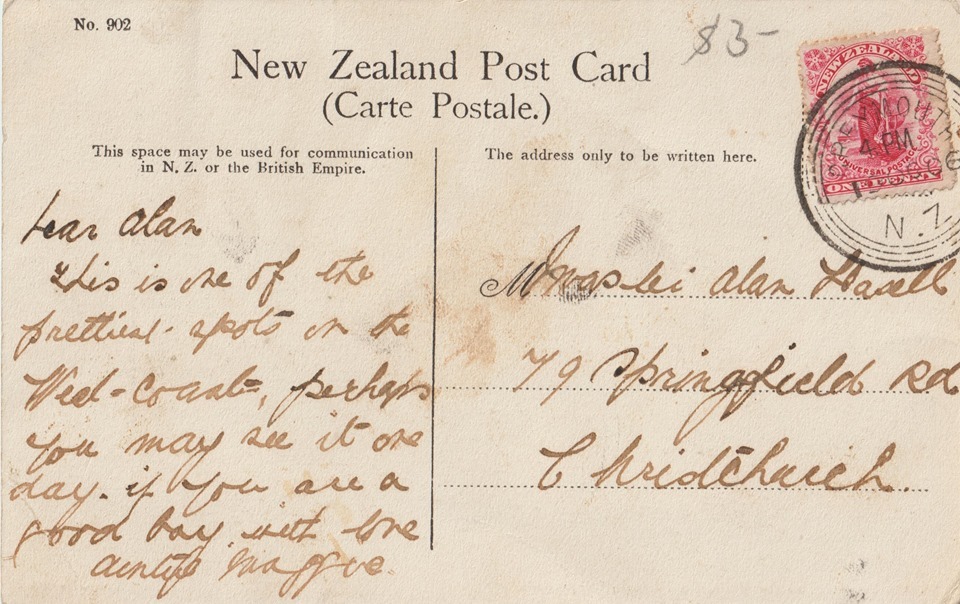 No. 902
$3-
New Zealand Post Card
(Carte Postale.)
This space may be used for communication
in N. Z. or the British Empire.
The address only to be written here.
NEW ZEALAND
UNIVERSAL POSTAGE
ONE PENNY
GREYMOUTH
4 PM
N.Z
Dear Alan
this is one of the
prettiest spots on the
West-Coast, perhaps
you may see it one
day. if you are a
good boy. with love
auntye Maggie.
Master Alan
79 Springfield Rd
Christchurch.